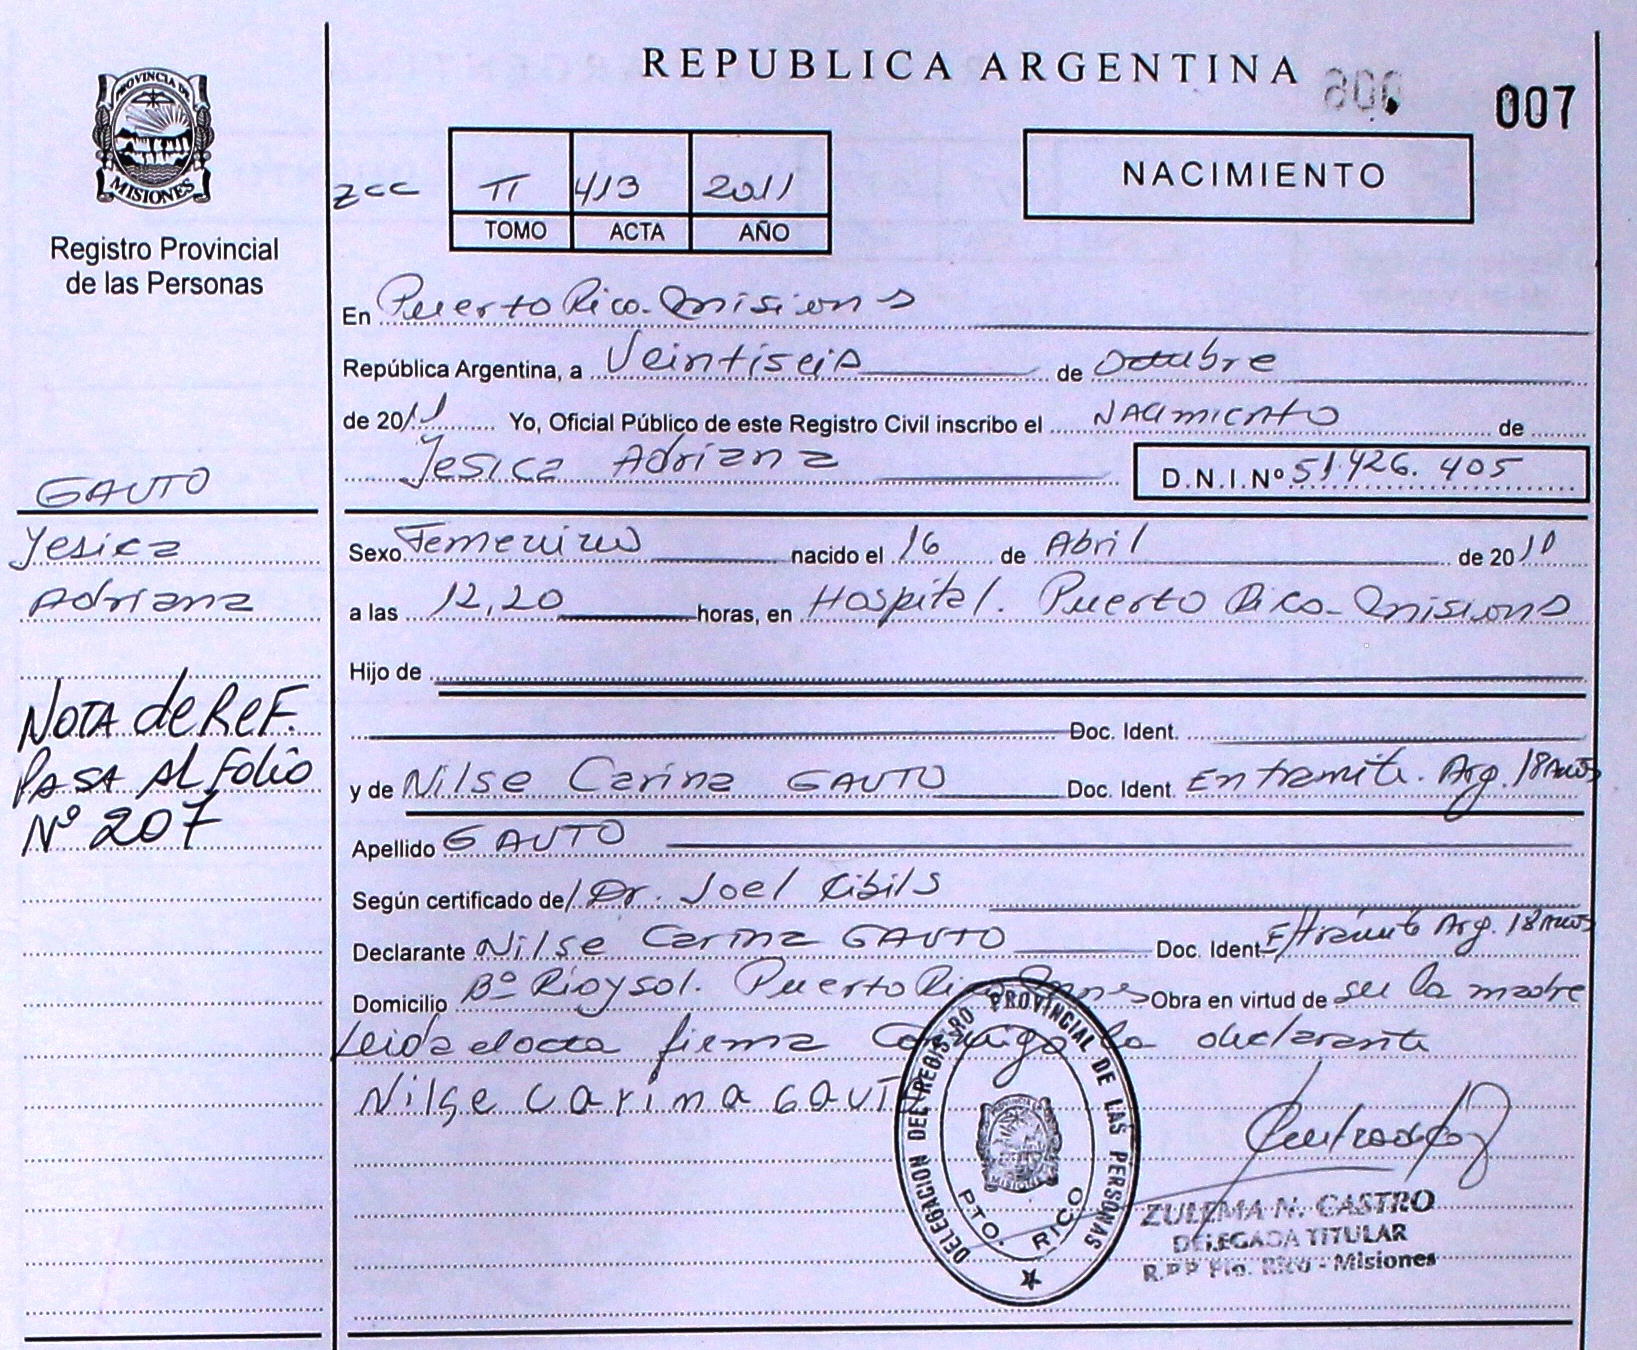 REPUBLICA ARGENTINA
006
007
PROVINCIA DE
MISIONES
Registro Provincial
de las Personas
zcc
TI 413 2011
TOMO ACTA AÑO
NACIMIENTO
En Puerto Rico - Misiones
República Argentina, a Veintiseis de Octubre
de 2011 Yo, Oficial Público de este Registro Civil inscribo el Nacimiento de
Yesica Adriana D.N.I.Nº 51.426.405
GAUTO
Yesica
Adriana
Sexo Femenino nacido el 16 de Abril de 2010
a las 12,20 horas, en Hospital. Puerto Rico - Misiones
Hijo de
NOTA de ReF.
PASA AL Folio
Nº 207
Doc. Ident.
y de Nilse Carina GAUTO Doc. Ident. En tramite. Arg. 18 años
Apellido GAUTO
Según certificado de Dr. Joel Cibils
Declarante Nilse Carina GAUTO Doc. Ident. E/tramite Arg. 18 años
Domicilio Bº Rio y sol. Puerto Rico Mnes Obra en virtud de ser la madre
Leida el acta firma conmigo la declarante
Nilse Carina GAUTO
DELEGACION DEL REGISTRO PROVINCIAL DE LAS PERSONAS
PTO. RICO
ZULEMA N. CASTRO
DELEGADA TITULAR
R.P.P. Pto. Rico - Misiones